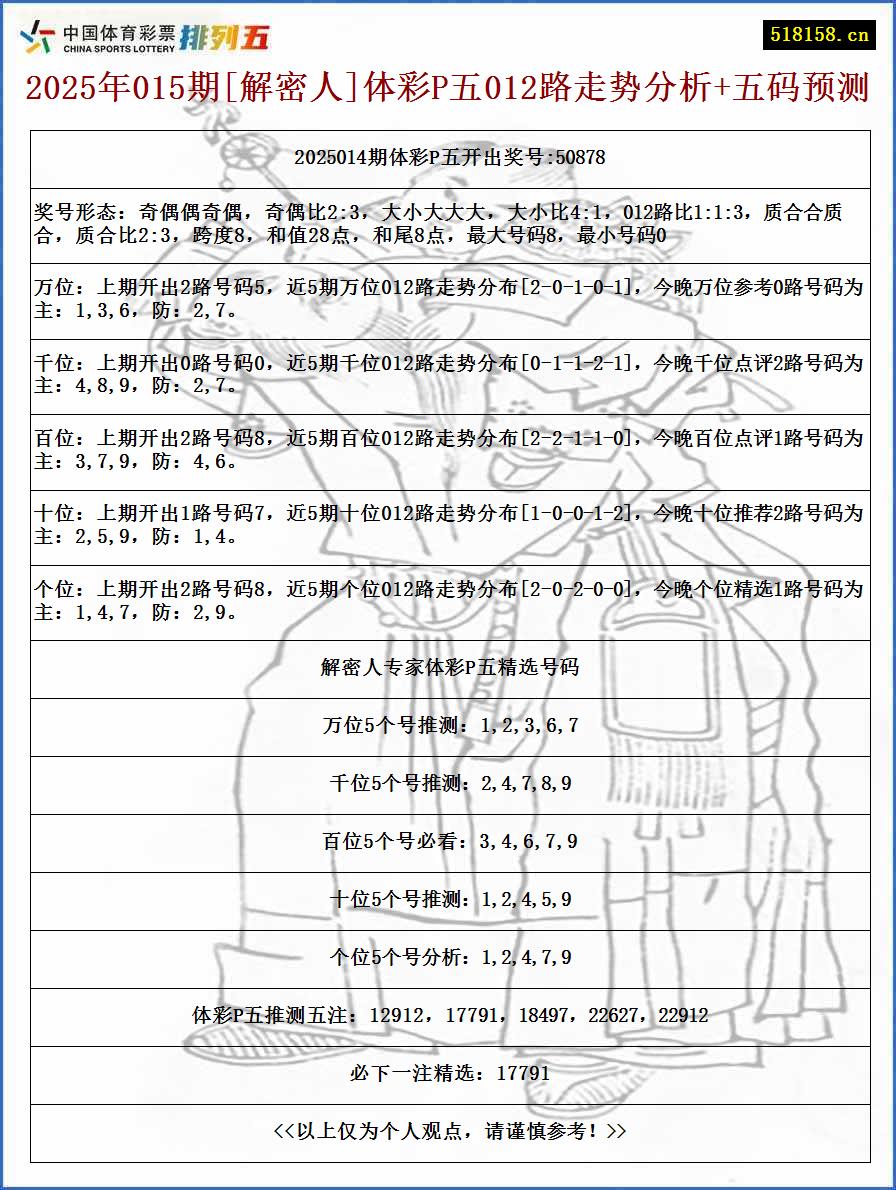 中国体育彩票
CHINA SPORTS LOTTERY
排列五
518158.cn
2025年015期[解密人]体彩P五012路走势分析+五码预测
2025014期体彩P五开出奖号:50878
奖号形态：奇偶偶奇偶，奇偶比2:3，大小大大大，大小比4:1，012路比1:1:3，质合合质
合，质合比2:3，跨度8，和值28点，和尾8点，最大号码8，最小号码0
万位：上期开出2路号码5，近5期万位012路走势分布[2-0-1-0-1]，今晚万位参考0路号码为
主：1,3,6，防：2,7。
千位：上期开出0路号码0，近5期千位012路走势分布[0-1-1-2-1]，今晚千位点评2路号码为
主：4,8,9，防：2,7。
百位：上期开出2路号码8，近5期百位012路走势分布[2-2-1-1-0]，今晚百位点评1路号码为
主：3,7,9，防：4,6。
十位：上期开出1路号码7，近5期十位012路走势分布[1-0-0-1-2]，今晚十位推荐2路号码为
主：2,5,9，防：1,4。
个位：上期开出2路号码8，近5期个位012路走势分布[2-0-2-0-0]，今晚个位精选1路号码为
主：1,4,7，防：2,9。
解密人专家体彩P五精选号码
万位5个号推测：1,2,3,6,7
千位5个号推测：2,4,7,8,9
百位5个号必看：3,4,6,7,9
十位5个号推测：1,2,4,5,9
个位5个号分析：1,2,4,7,9
体彩P五推测五注：12912，17791，18497，22627，22912
必下一注精选：17791
<<以上仅为个人观点，请谨慎参考！>>